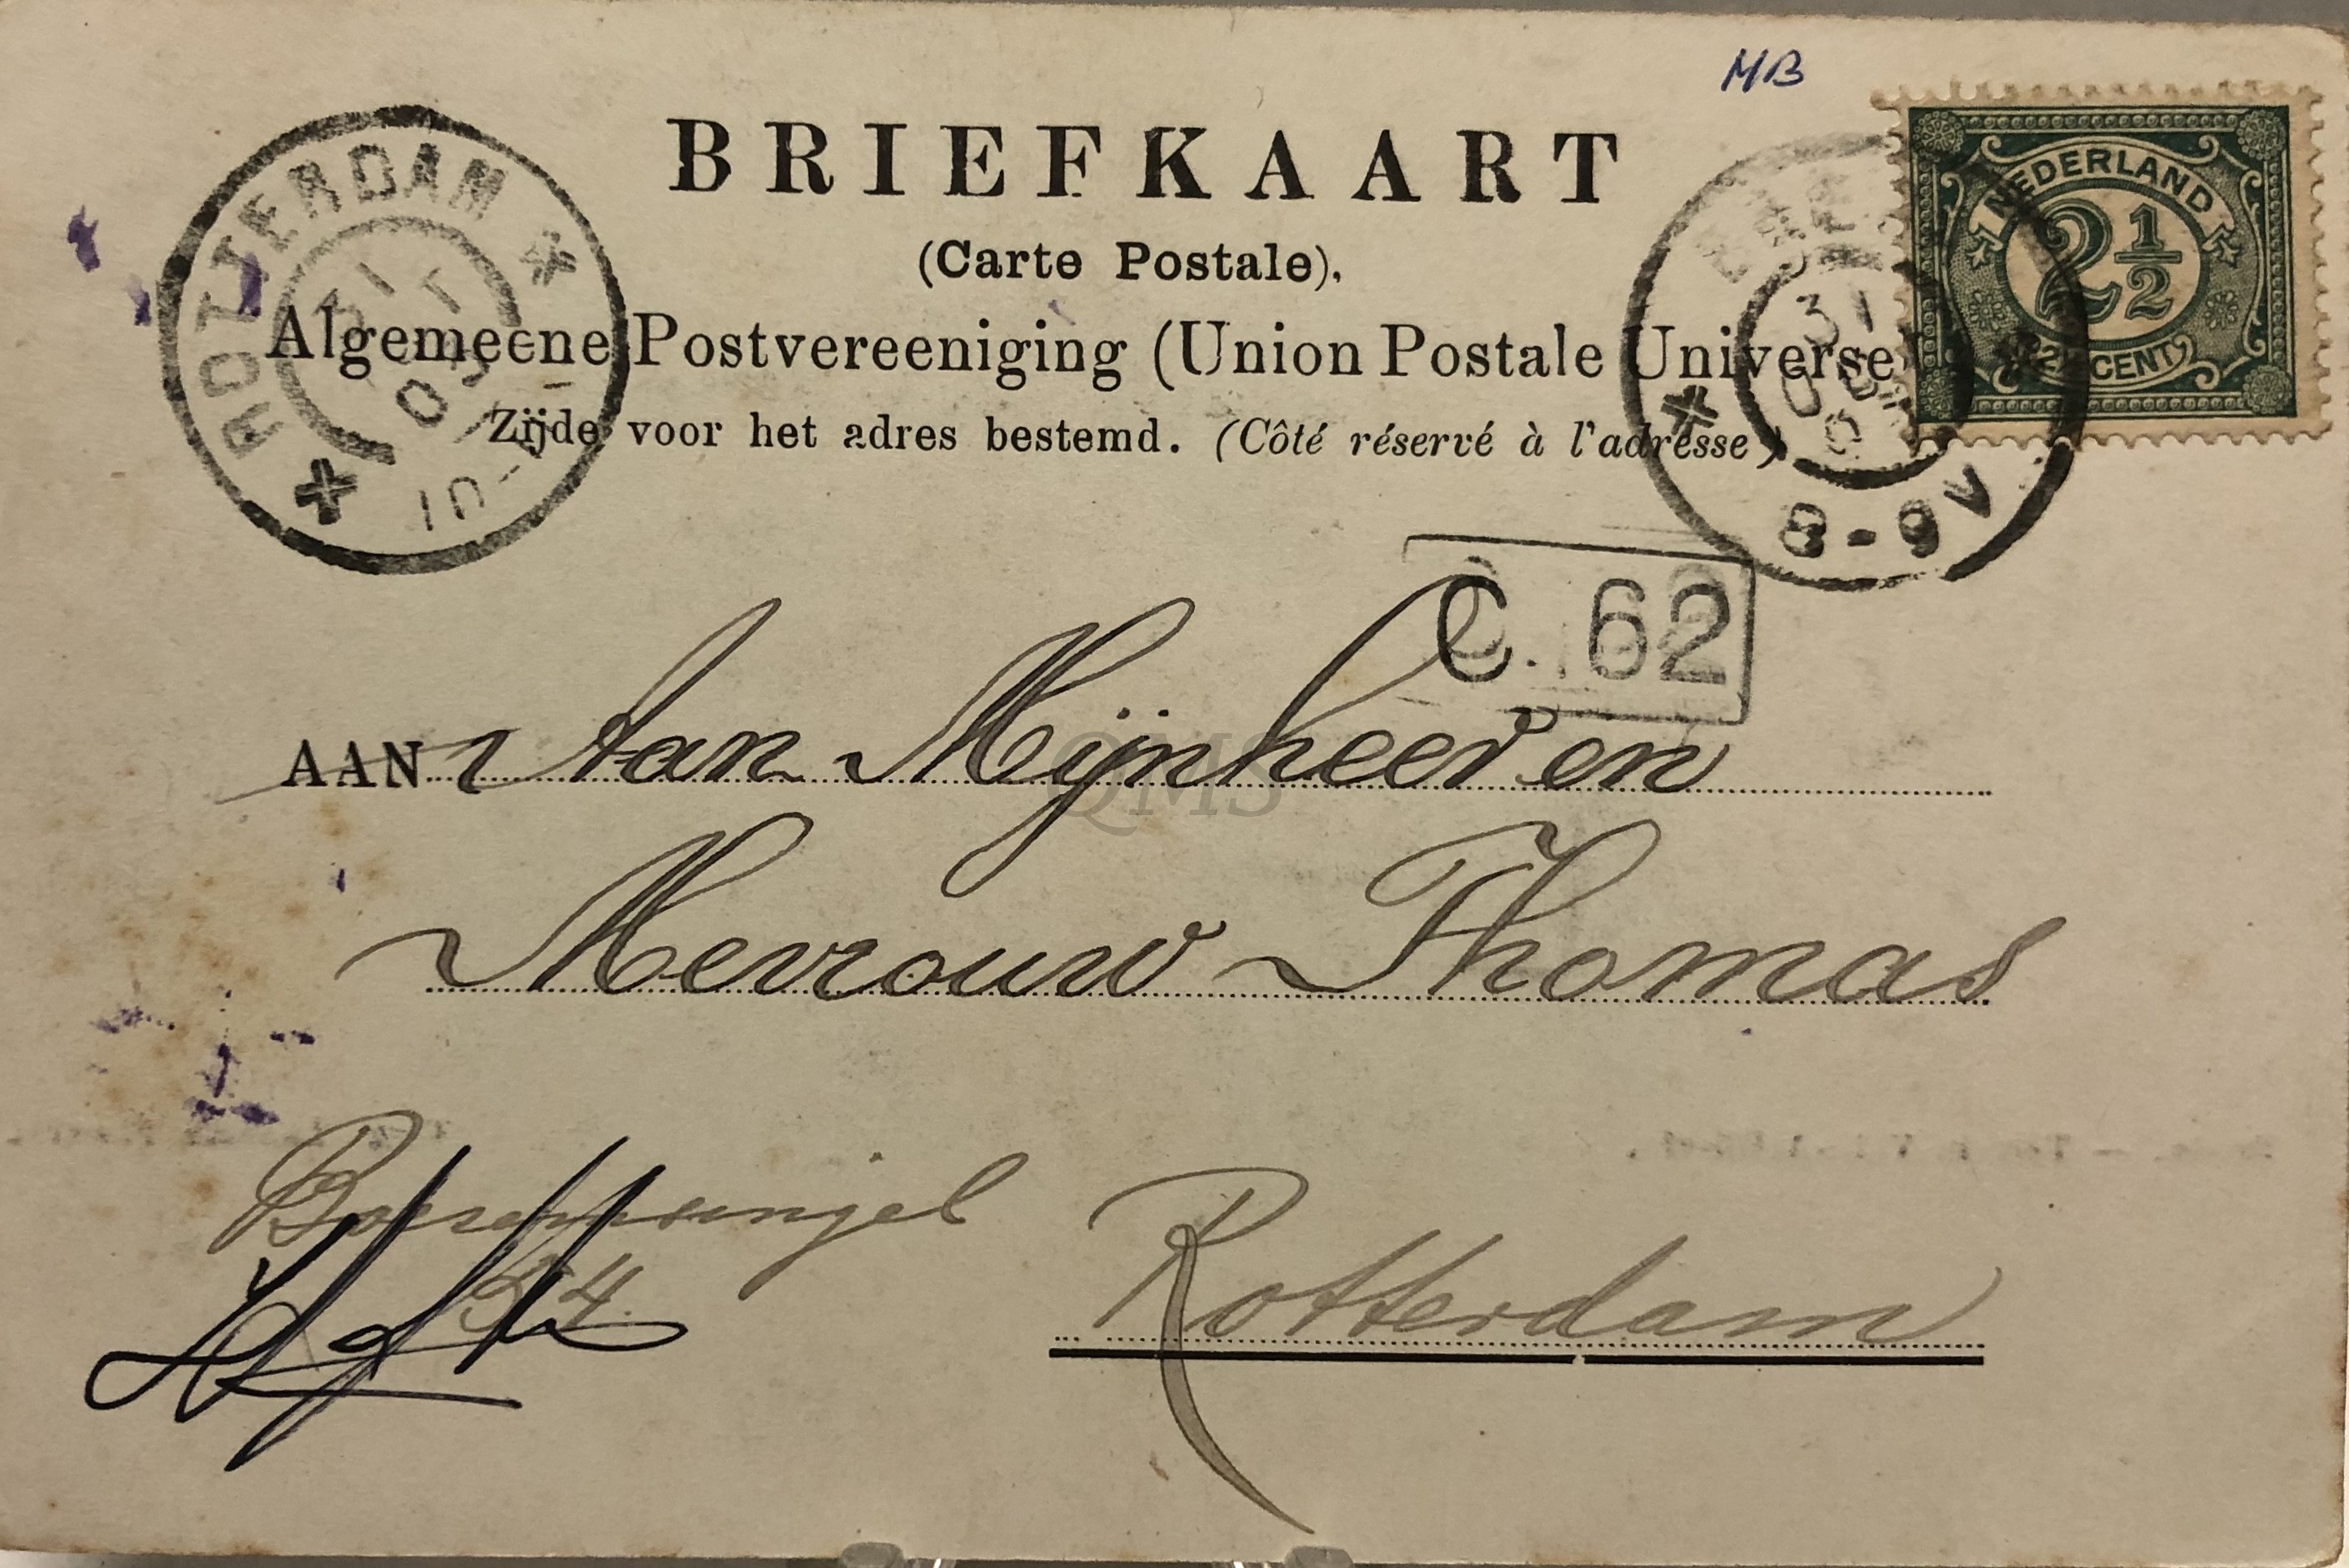 MB
BRIEFKAART
(Carte Postale).
Algemeene Postvereeniging (Union Postale Universe
Zijde voor het adres bestemd. (Côté réservé à l'adresse)
NEDERLAND
2½
2½ CENT
ROTTERDAM
31
31
8-9V
C. 62
AAN Aan Mijnheer en
Mevrouw Thomas
QMS
54.
Rotterdam